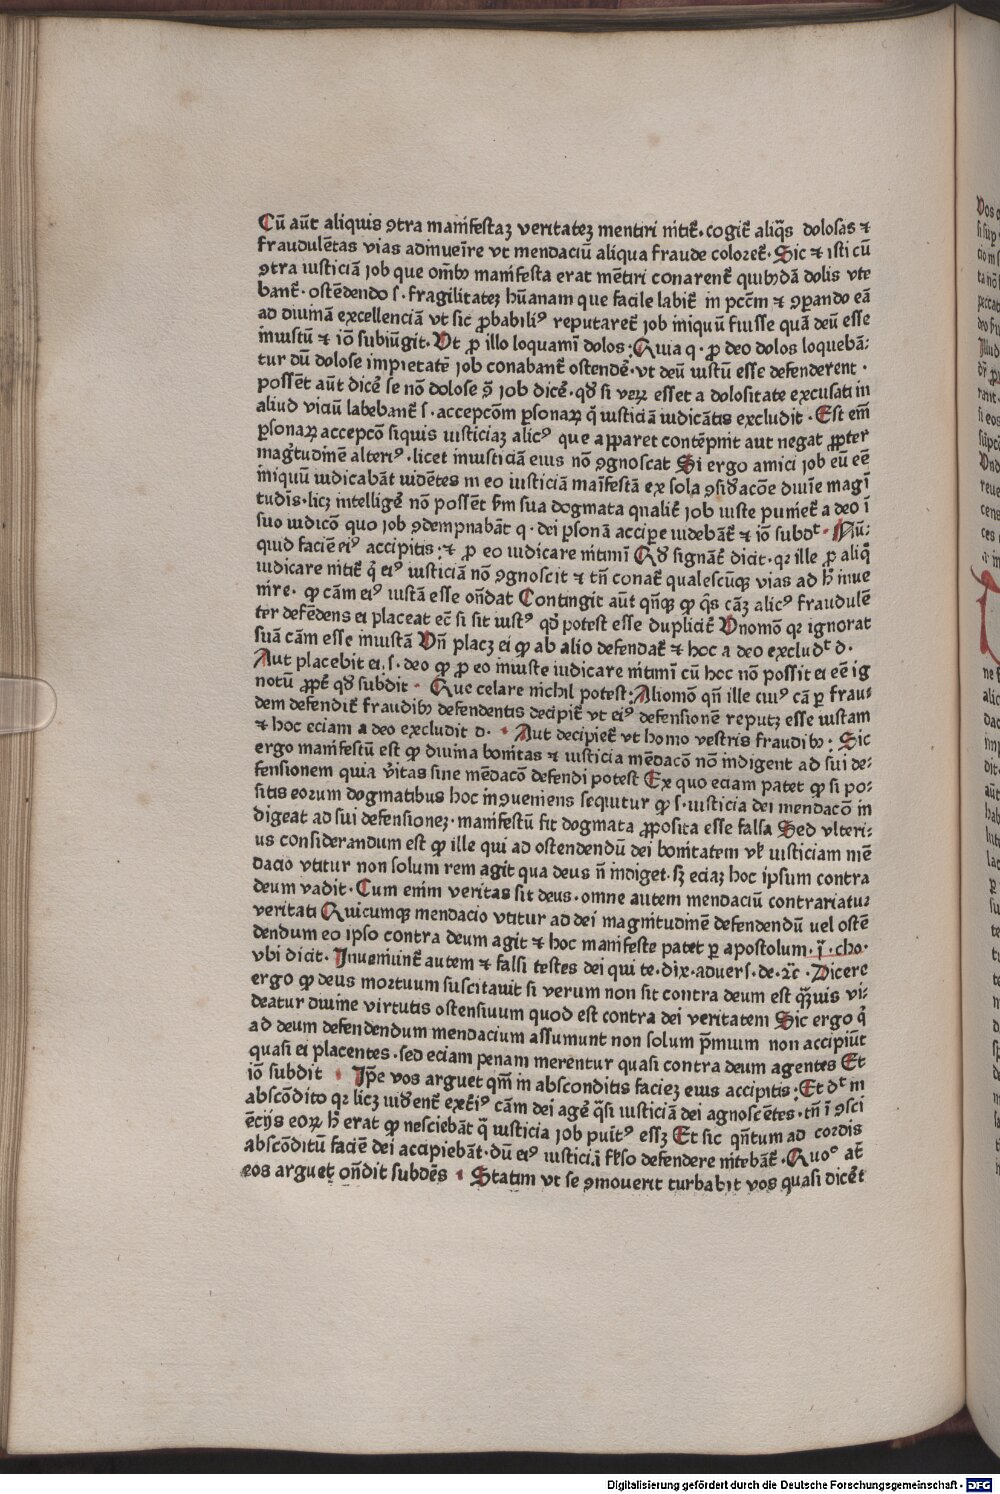 Cū aūt aliquis ꝯtra manifestaꝫ veritateꝫ mentiri nitit᷑. cogit᷑ aliq̄s dolosas ⁊
fraudulētas vias adinuenīre vt mendaciū aliqua fraude coloret᷑. Sic ⁊ isti cū
ꝯtra iusticiā job que omībꝫ manifesta erat mētiri conarent᷑ quibꝫdā dolis vte
bant᷑. ostēdendo s. fragilitateꝫ hūanam que facile labit᷑ in pccm̄ ⁊ ꝯparando eā
ad diuinā excellenciā vt sic ꝓbabiliꝰ reputaret᷑ job iniquū fuisse quā deū esse
iniustū ⁊ iō subiūgit. Vt ꝓ illo loquamī dolos: Quia q. ꝓ deo dolos loquebā:
tur dū dolose impietatē job conabant᷑ ostendē. vt deū iustū esse defenderent.
possēt aūt dicē se nō dolose ꝯ̄ job dicē. qd̄ si veꝝ esset a dolositate excusati in
aliud viciū labebant᷑ s. accepcōm ꝑsonaꝝ q̄ iusticiā iudicātis excludit. Est em̄
ꝑsonaꝝ accepcō siquis iusticiaꝫ alicꝰ que apparet contēpnit aut negat ꝓpter
mag̅tudinē alteriꝰ. licet iniusticiā eius nō ꝯgnoscat Si ergo amici job eū eē
iniquū iudicabāt uidētes in eo iusticiā maīfestā ex sola ꝯsid̄acōe diuīe magī
tudīs. licꝫ intelligē nō possēt ẜm sua dogmata qualit᷑ job iuste puniret᷑ a deo ī
suo iudicō quo job ꝯdempnabāt q. dei ꝑsonā acciꝑe uidebāt᷑ ⁊ iō subdᵗ. Nū:
quid faciē eiꝰ accipitis: ⁊ ꝓ eo iudicare nitimī Qd̄ signāt᷑ dicit. qꝛ ille ꝓ aliq̊
iudicare nitit᷑ q̊ eiꝰ iusticiā nō ꝯgnoscit ⁊ tn̄ conat᷑ qualescūqꝫ vias ad h̄ inue
nire. ꝙ cām eiꝰ iustā esse on̄dat Contingit aūt qn̄qꝫ ꝙ q̄s cāꝫ alicꝰ fraudulē
ter defēdens ei placeat ec̄ si sit iustꝰ qd̄ potest esse duplicit᷑ Vnomō qꝛ ignorat
suā cām esse iniustā Vn̄ placꝫ ei ꝙ ab alio defendat᷑ ⁊ hoc a deo excludᵗ d.
Aut placebit ei. s. deo ꝙ ꝓ eo iniuste iudicare nitimī cū hoc nō possit ei eē ig
notū ꝓpt᷑ qd̄ subdit. Que celare nichil potest: Aliomō qn̄ ille cuiꝰ cā ꝑ frau:
dem defendit᷑ fraudibꝫ defendentis decipit᷑ vt eiꝰ defensionē reputꝫ esse iustam
⁊ hoc eciam a deo excludit d. Aut decipiet᷑ vt homo vestris fraudibꝫ: Sic
ergo manifestū est ꝙ diuina bonitas ⁊ iusticia mēdacō nō indigent ad sui de:
fensionem quia v̄itas sine mēdacō defendi potest Ex quo eciam patet ꝙ si po:
sitis eorum dogmatibus hoc inꝯueniens sequitur ꝙ s. iusticia dei mendacō in
digeat ad sui defensioneꝫ. manifestū fit dogmata ꝓposita esse falsa Sed vlteri:
us considerandum est ꝙ ille qui ad ostendendū dei bonitatem vl̄ iusticiam mē
dacio vtitur non solum rem agit qua deus n̄ indiget. sꝫ eciaꝫ hoc ipsum contra
deum vadit. Cum enim veritas sit deus. omne autem mendaciū contrariatur
veritati Quicumqꝫ mendacio vtitur ad dei magnitudinē defendendū uel ostē
dendum eo ipso contra deum agit ⁊ hoc manifeste patet ꝑ apostolum. j̄. cho.
vbi dicit. Inueniunt᷑ autem ⁊ falsi testes dei qui te. dix. aduers. de. ⁊c̄. Dicere
ergo ꝙ deus mortuum suscitauit si verum non sit contra deum est q̄ꝫuis vi:
deatur diuine virtutis ostensiuum quod est contra dei veritatem Sic ergo q̊
ad deum defendendum mendacium assumunt non solum p̄mium non accipiūt
quasi ei placentes. sed eciam penam merentur quasi contra deum agentes Et
iō subdit Ip̄e vos arguet qm̄ in absconditis facieꝫ eius accipitis: Et dᵗ in
abscōdito qꝛ licꝫ uid̄ent᷑ ext̄iꝰ cām dei agē q̄si iusticiā dei agnoscētes. tn̄ ī ꝯsci
ēcijs eoꝝ h̄ erat ꝙ nesciebāt q̄ iusticia job puītꝰ essꝫ Et sic qn̄tum ad cordis
abscōditū faciē dei accipiebāt. dū eiꝰ iusticiā fl̄so defendere nitebāt᷑. Quoᵒ at̄
eos arguet on̄dit subdēs Statim vt se ꝯmouerit turbabit vos quasi dicēt
Digitalisierung gefördert durch die Deutsche Forschungsgemeinschaft - DFG